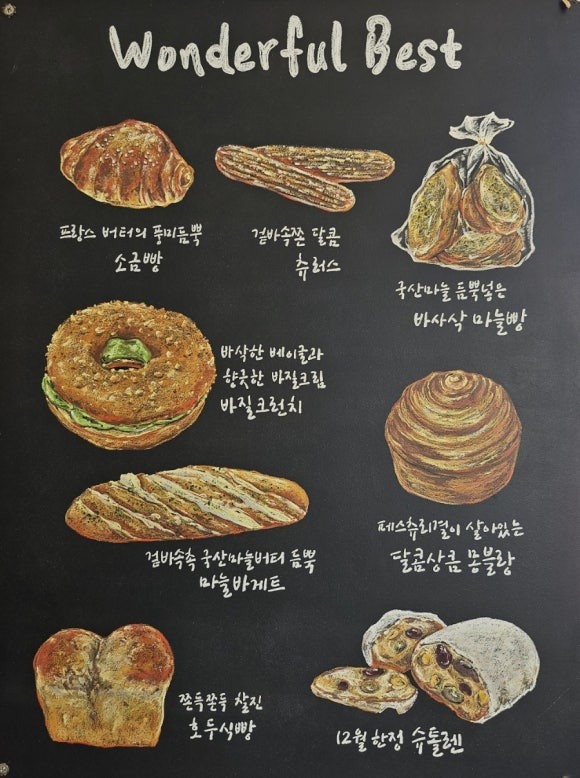 Wonderful Best
프랑스 버터의 풍미듬뿍
소금빵
겉바속쫀 달콤
츄러스
국산마늘 듬뿍넣은
바사삭 마늘빵
바삭한 베이글과
향긋한 바질크림
바질크런치
페스츄리결이 살아있는
달콤상큼 몽블랑
겉바속촉 국산마늘버터 듬뿍
마늘바게트
쫀득쫀득 찰진
호두식빵
12월 한정 슈톨렌